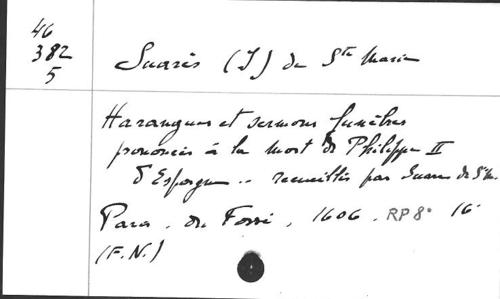 46
382
5
Suarès (J) de Ste Marie
Harangues et sermons funèbres
prononcés à la mort de Philippe II
d'Espagne .. recueillis par Suarès de Ste M.
Paris . du Fossé , 1606 . RP 8° 16°
(F.N.)